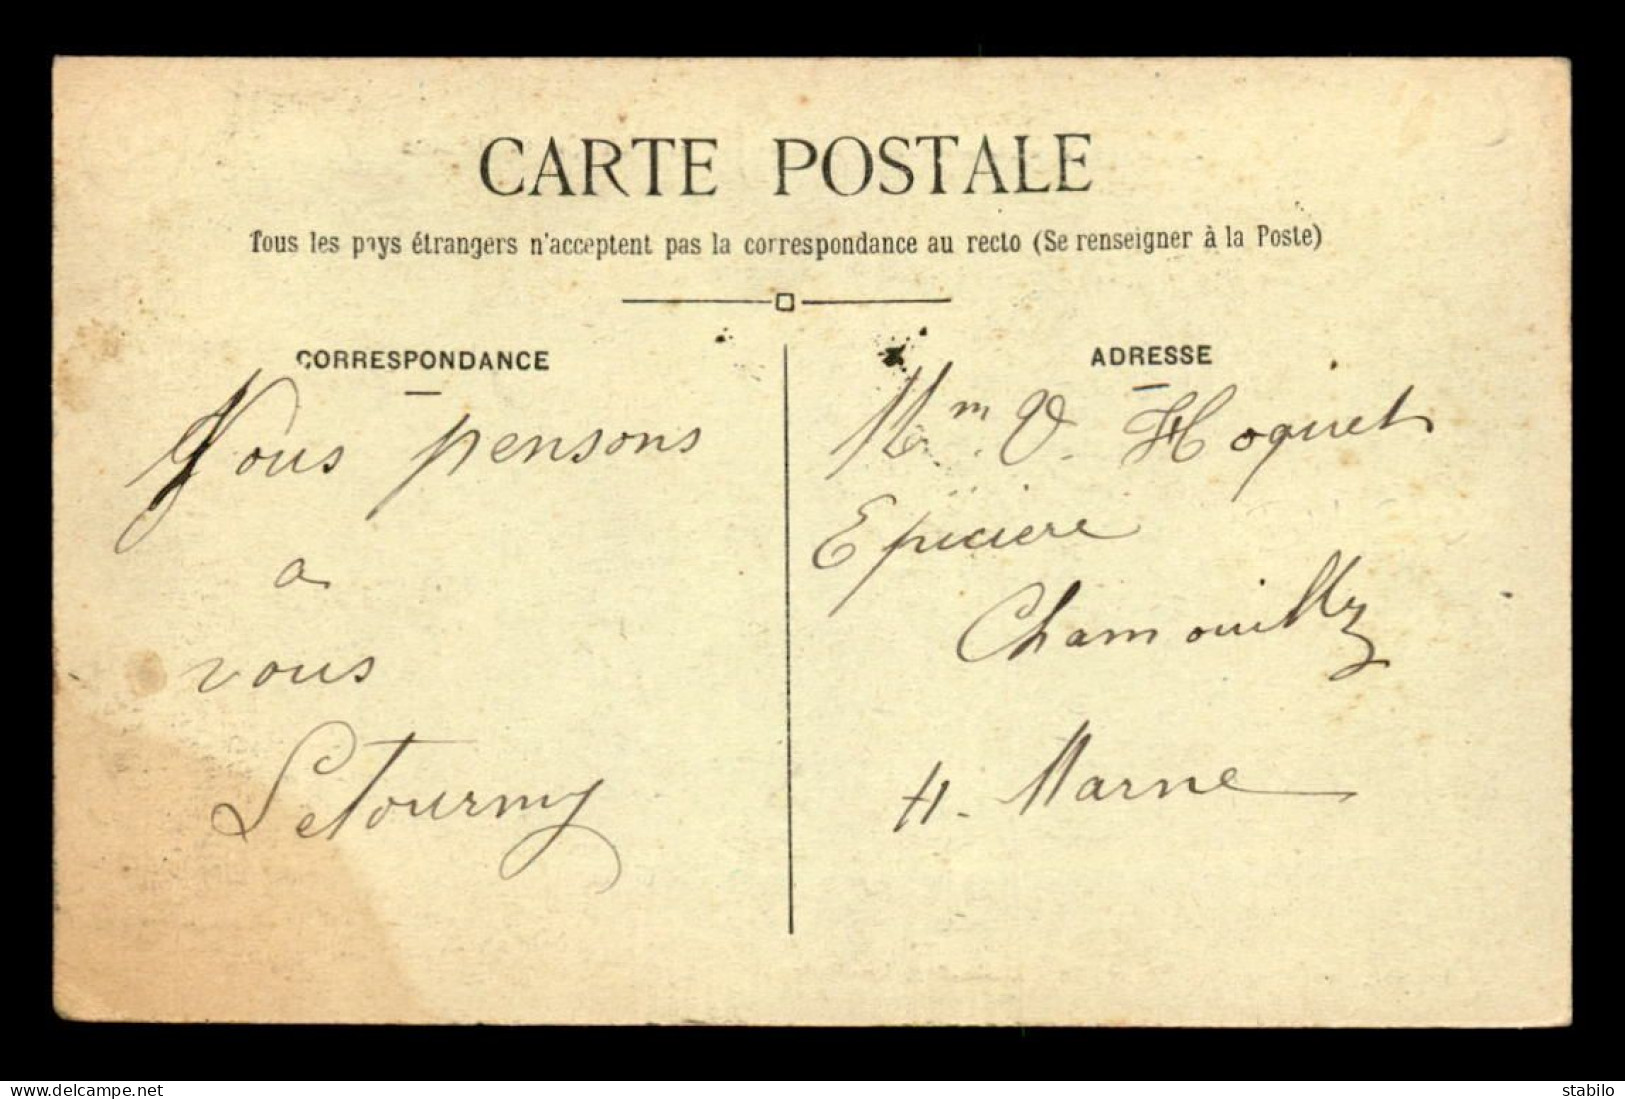 CARTE POSTALE
Tous les pays étrangers n'acceptent pas la correspondance au recto (Se renseigner à la Poste)
CORRESPONDANCE
Nous pensons
a
vous
Letourny
ADRESSE
Mm V. Hoquet
Epiciere
Chamouilly
H. Marne
www.delcampe.net
stabilo